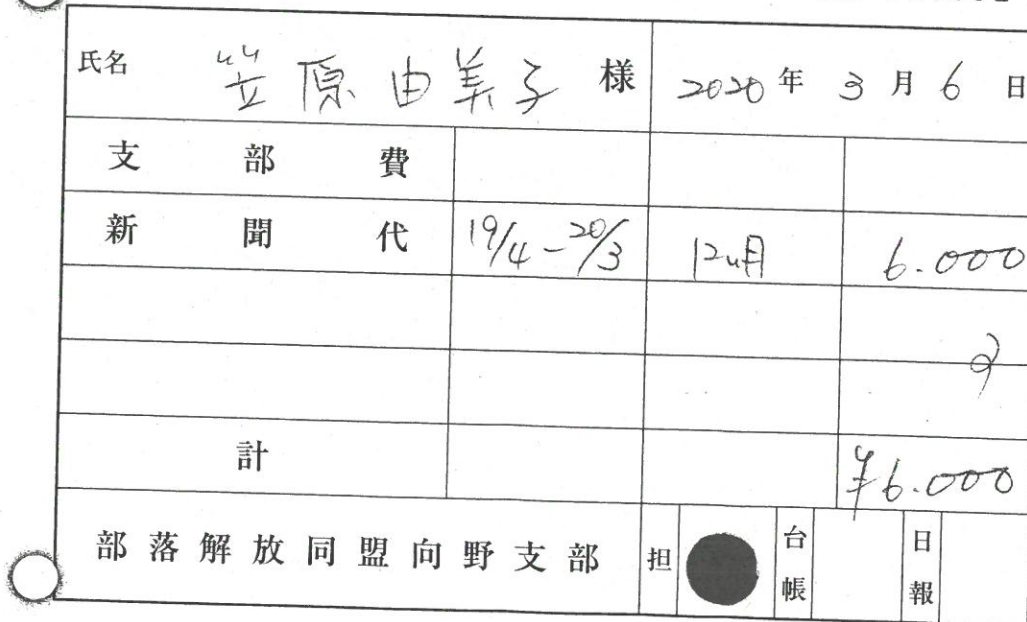 氏名 笠原由美子 様 2020年 3月 6日
支部費
新聞代 19/4-20/3 12ヶ月 6.000
計 ¥6.000
部落解放同盟向野支部 担 台帳 日報